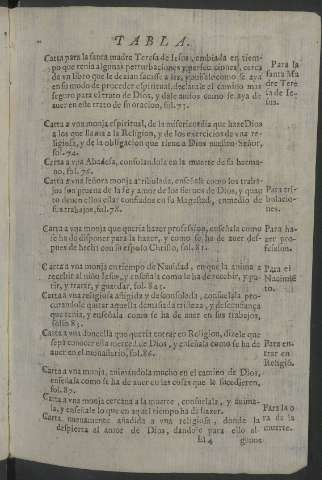 TABLA.
Carta para la santa madre Teresa de Iesus, embiada en tiem-
po que tenia algunas perturbaciones y persecuciones, cerca
de vn libro que le dezian sacasse a luz, y auisale como se aya
en su modo de proceder espiritual, declarale el camino mas
seguro para el trato de Dios, y dale auisos como se aya de
auer en el trato de su oracion, fol. 73.
Para la
santa Ma
dre Tere
sa de Ie-
sus.
Carta a vna monja espiritual, de la misericordia que haze Dios
a los que llama a la Religion, y de los exercicios de vna re-
ligiosa, y de la obligacion que tiene a Dios nuestro Señor,
fol. 74.
Carta a vna Abadesa, consolandola en la muerte de su herma-
no, fol. 76.
Carta a vna señora monja atribulada, enseñale como los traba-
jos son prueua de la fe y amor de los sieruos de Dios, y quan
to deuen ellos estar confiados en su Magestad, en medio de
sus trabajos, fol. 78.
Para tri-
bulacio-
nes.
Carta a vna monja que queria hazer profession, enseñala como
se ha de disponer para la hazer, y como se ha de auer des-
pues de hecha con su esposo Christo, fol. 81.
Para ha-
zer pro-
fession.
Carta a vna monja en tiempo de Nauidad, en que la anima a
recebir al niño Iesus, y enseñala como le ha de recebir, y pa-
rir, y tratar, y guardar, fol. 84.
Para el
Nacimiẽ
to.
Carta a vna religiosa afligida y desconsolada, consuelala pro-
curandole quitar aquella demasiada tristeza, y desconfiança
que tenia, y enseñala como se ha de auer en sus trabajos,
folio 85.
Carta a vna donzella que queria entrar en Religion, dizele que
sepa conocer esta merced de Dios, y enseñala como se ha de
auer en el monasterio, fol. 86.
Para en-
trar en
Religiõ.
Carta a vna monja, animandola mucho en el camino de Dios,
enseñala como se ha de auer en las cosas que le sucedieren,
fol. 87.
Carta a vna monja cercana a la muerte, consuelala, y anima-
la, y enseñale lo que en aquel tiempo ha de hazer.
Para la o
ra de la
muerte.
Carta nueuamente añadida a vna religiosa, donde la
despierta al amor de Dios, dandole para ello al
gunos